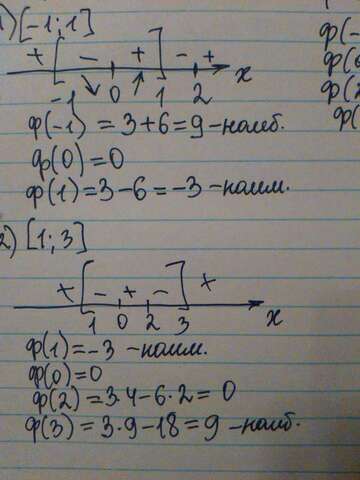 1) [-1; 1]
+ [ - + ] - +
-1 0 1 2 x
ф(-1) = 3+6=9-наиб.
ф(0)=0
ф(1)=3-6=-3-наим.
2) [1; 3]
+ [ - + - ] +
1 0 2 3 x
ф(1)=-3 -наим.
ф(0)=0
ф(2)=3·4-6·2= 0
ф(3)=3·9-18=9 -наиб.
ф(-
ф(
ф(2
ф(